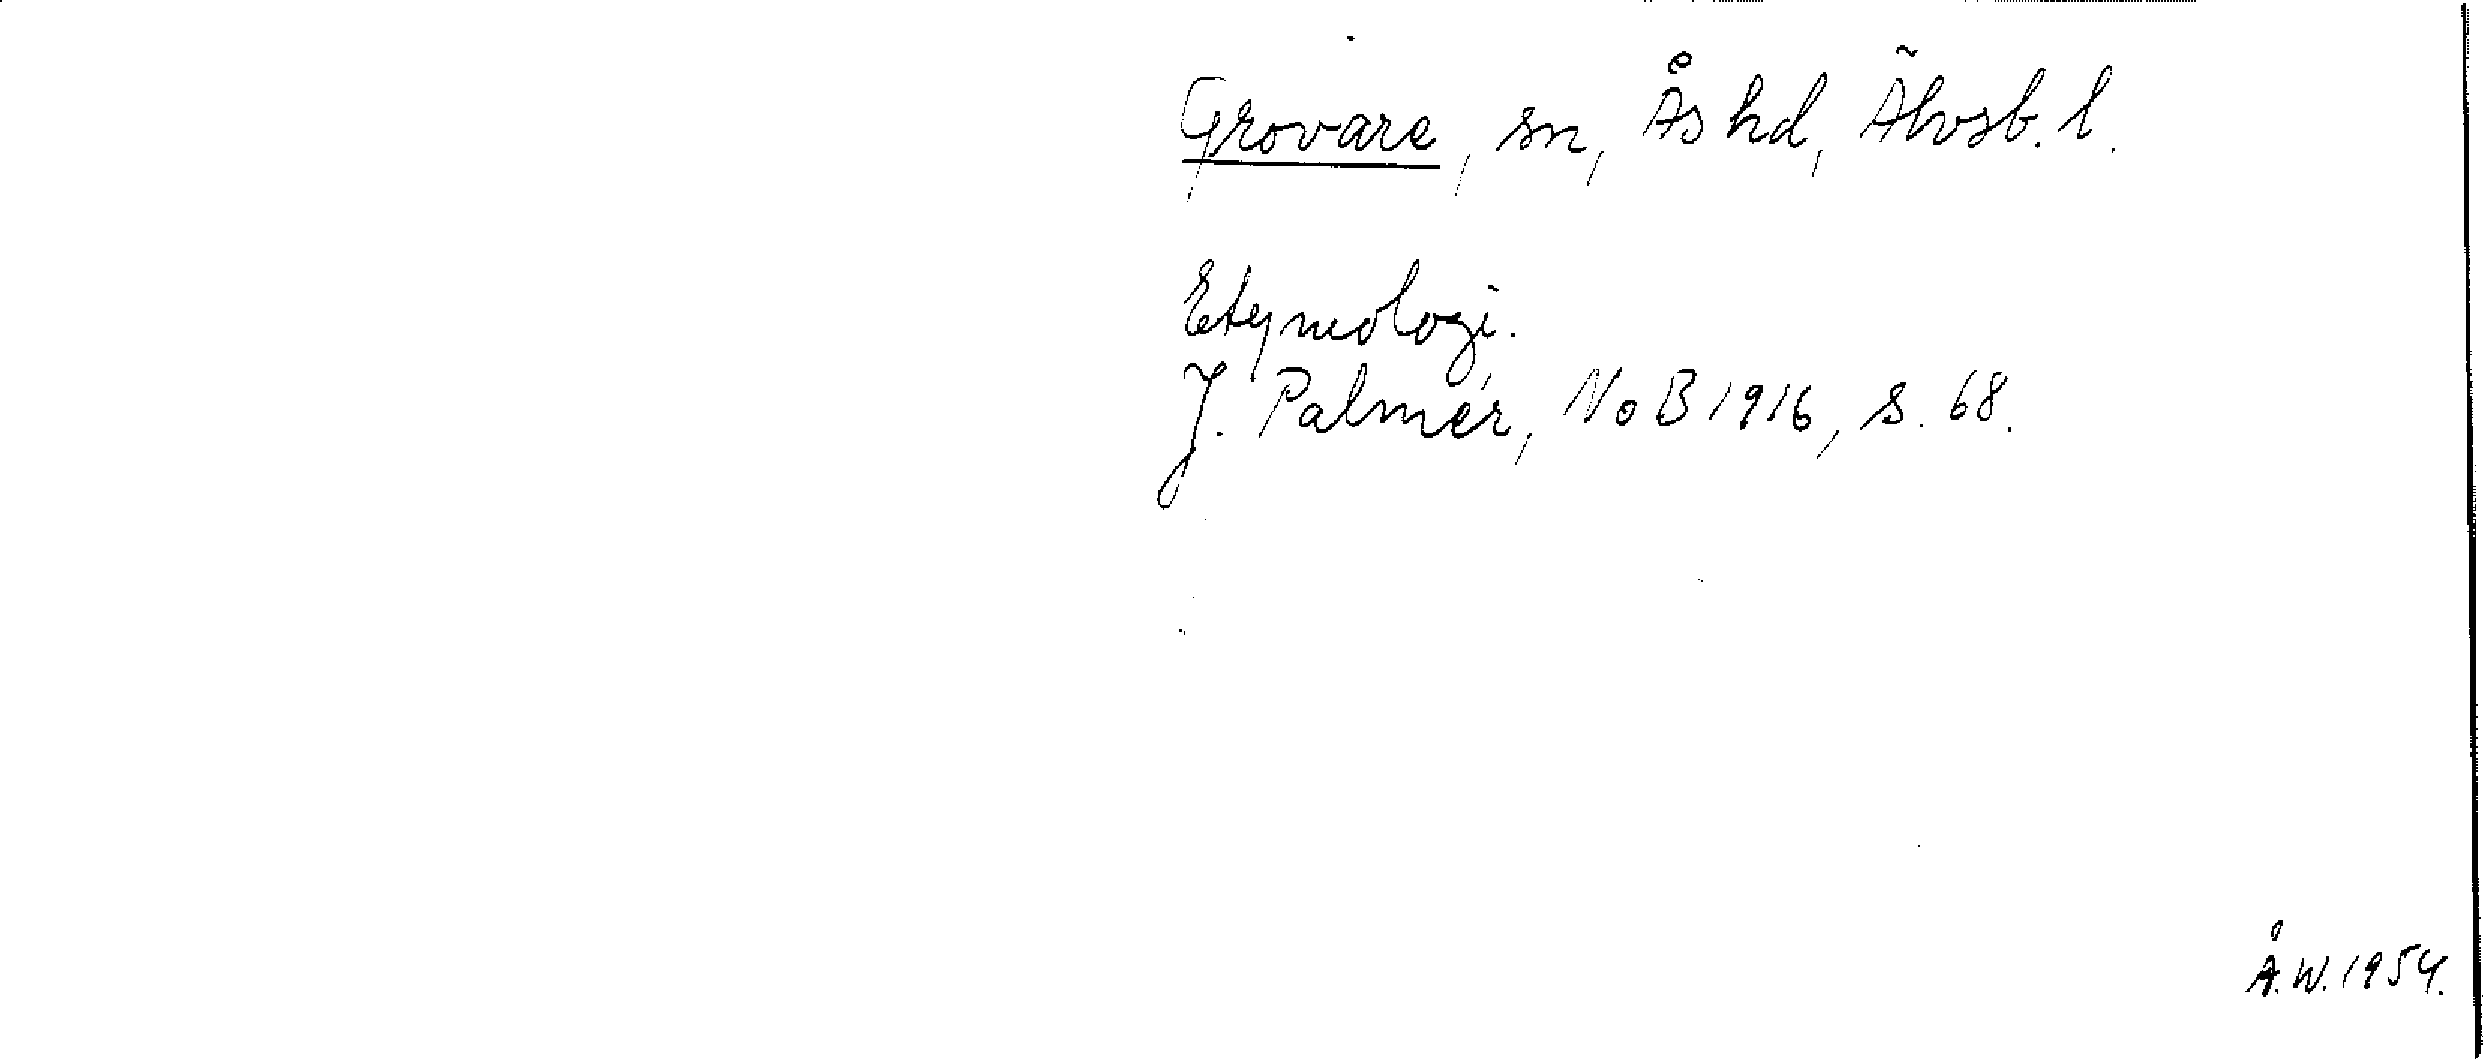 Grovare, sn, Ås hd, Älvsb. l.
Etymologi.
J. Palmér, NoB 1916, s. 68.
Å.W. 1954.